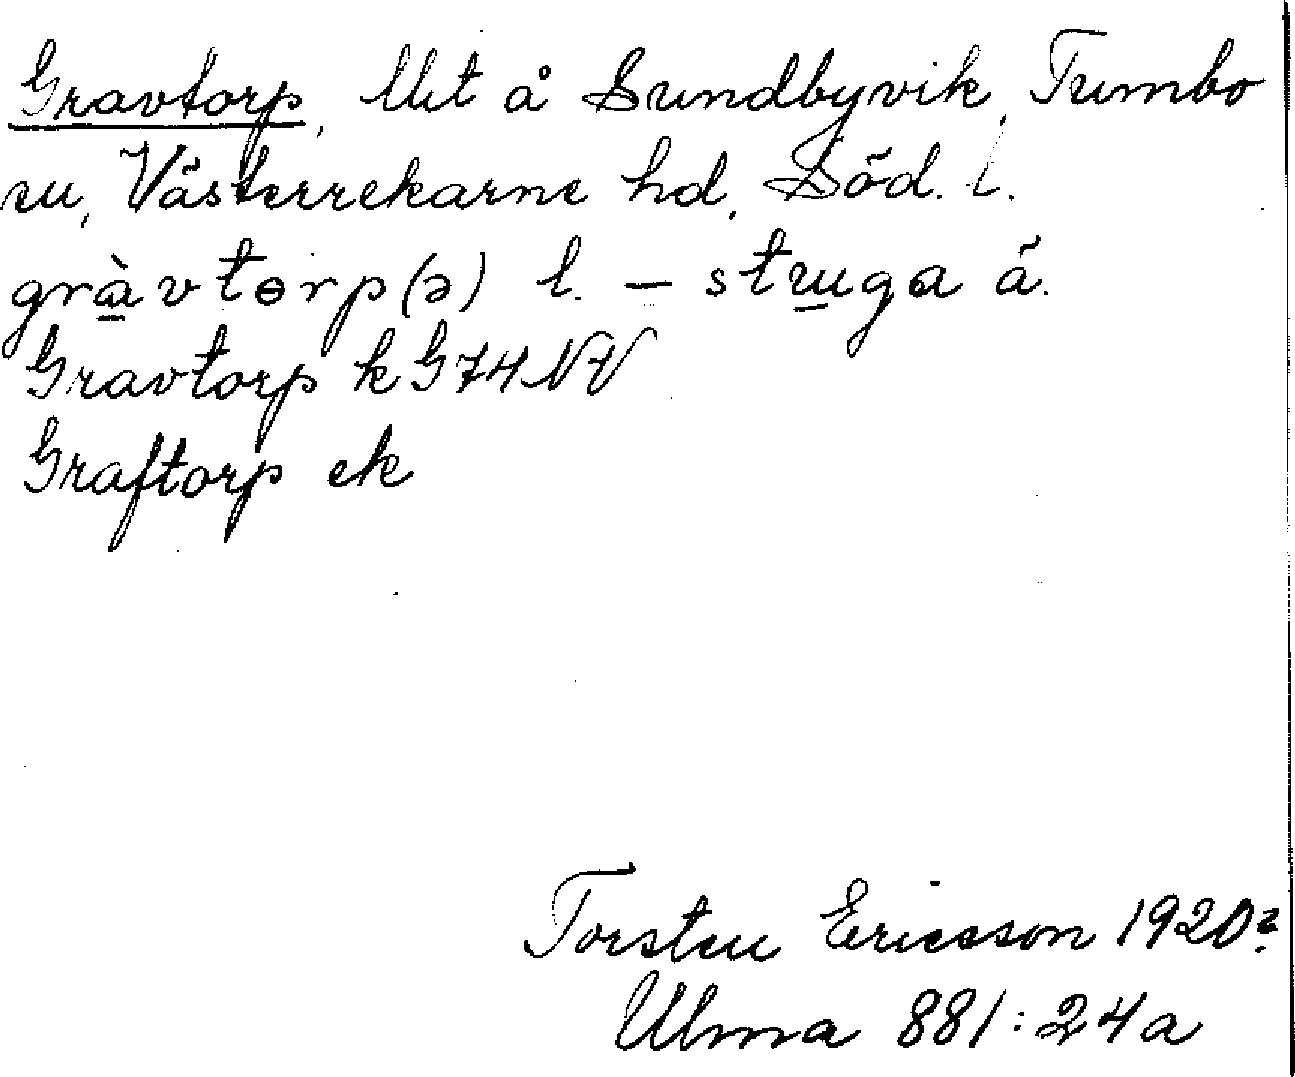 Gravtorp, Utlt å Sundbyvik, Tumbo
sn, Västerrekarne hd, Söd. l.
gràvtɵrp(ə) l. – stuga ä.
Gravtorp k G74NV
Graftorp ek
Torsten Ericsson 1920?
Ulma 881:24a